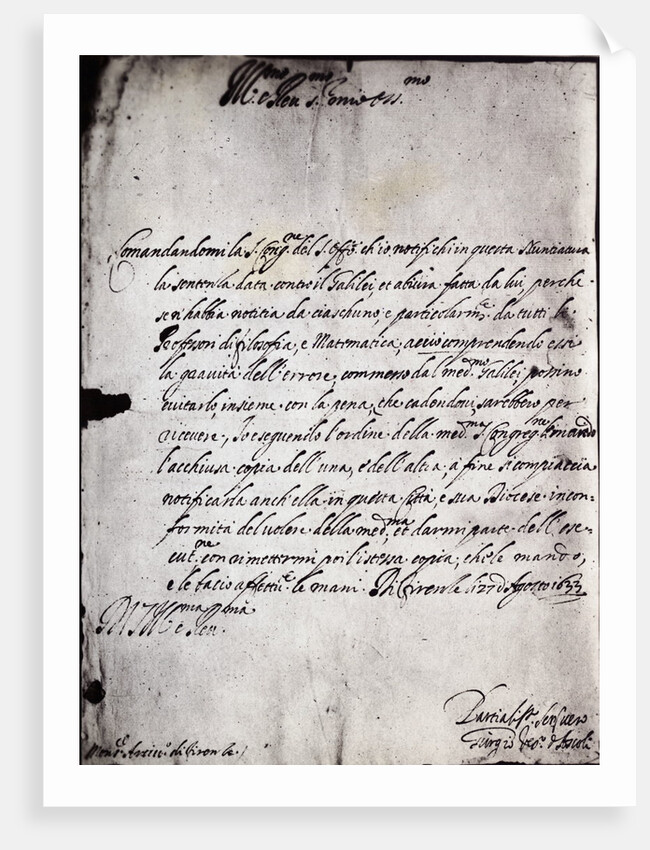 M.to Ill.re et
Comandandomi la S. Cong.ne del S. Off.o ch'io notifichi in questa Nuntiatura
la sentenza data contro il Galilei, et abiura fatta da lui, perche
se n'habbia notitia da ciaschuno, e particolarm.te da tutti li
Professori di filosofia, e Matematica, acciò comprendendo essi
la gravità dell'errore, commesso dal med.mo Galilei, possino
evitarlo, insieme con la pena, che cadendovi, sarebbero per
ricevere, Io eseguendo l'ordine della med.ma S. Congreg.ne le mando
l'acchiusa copia dell'una, e dell'altra, à fine si compiaccia
notificarla anch'ella in questa Città, e sua Diocese in con=
formità del volere della med.ma, et darmi parte dell'ese=
cut.ne con rimettermi poi l'istessa copia, che le mando,
e le bacio affettu.te le mani. Di Firenze li 27 d'Agosto 1633
D V S
Mons.re Arciv.o di Firenze
Partialiss.o Ser.re vero
Giorgio Vesc.o d'Ascoli